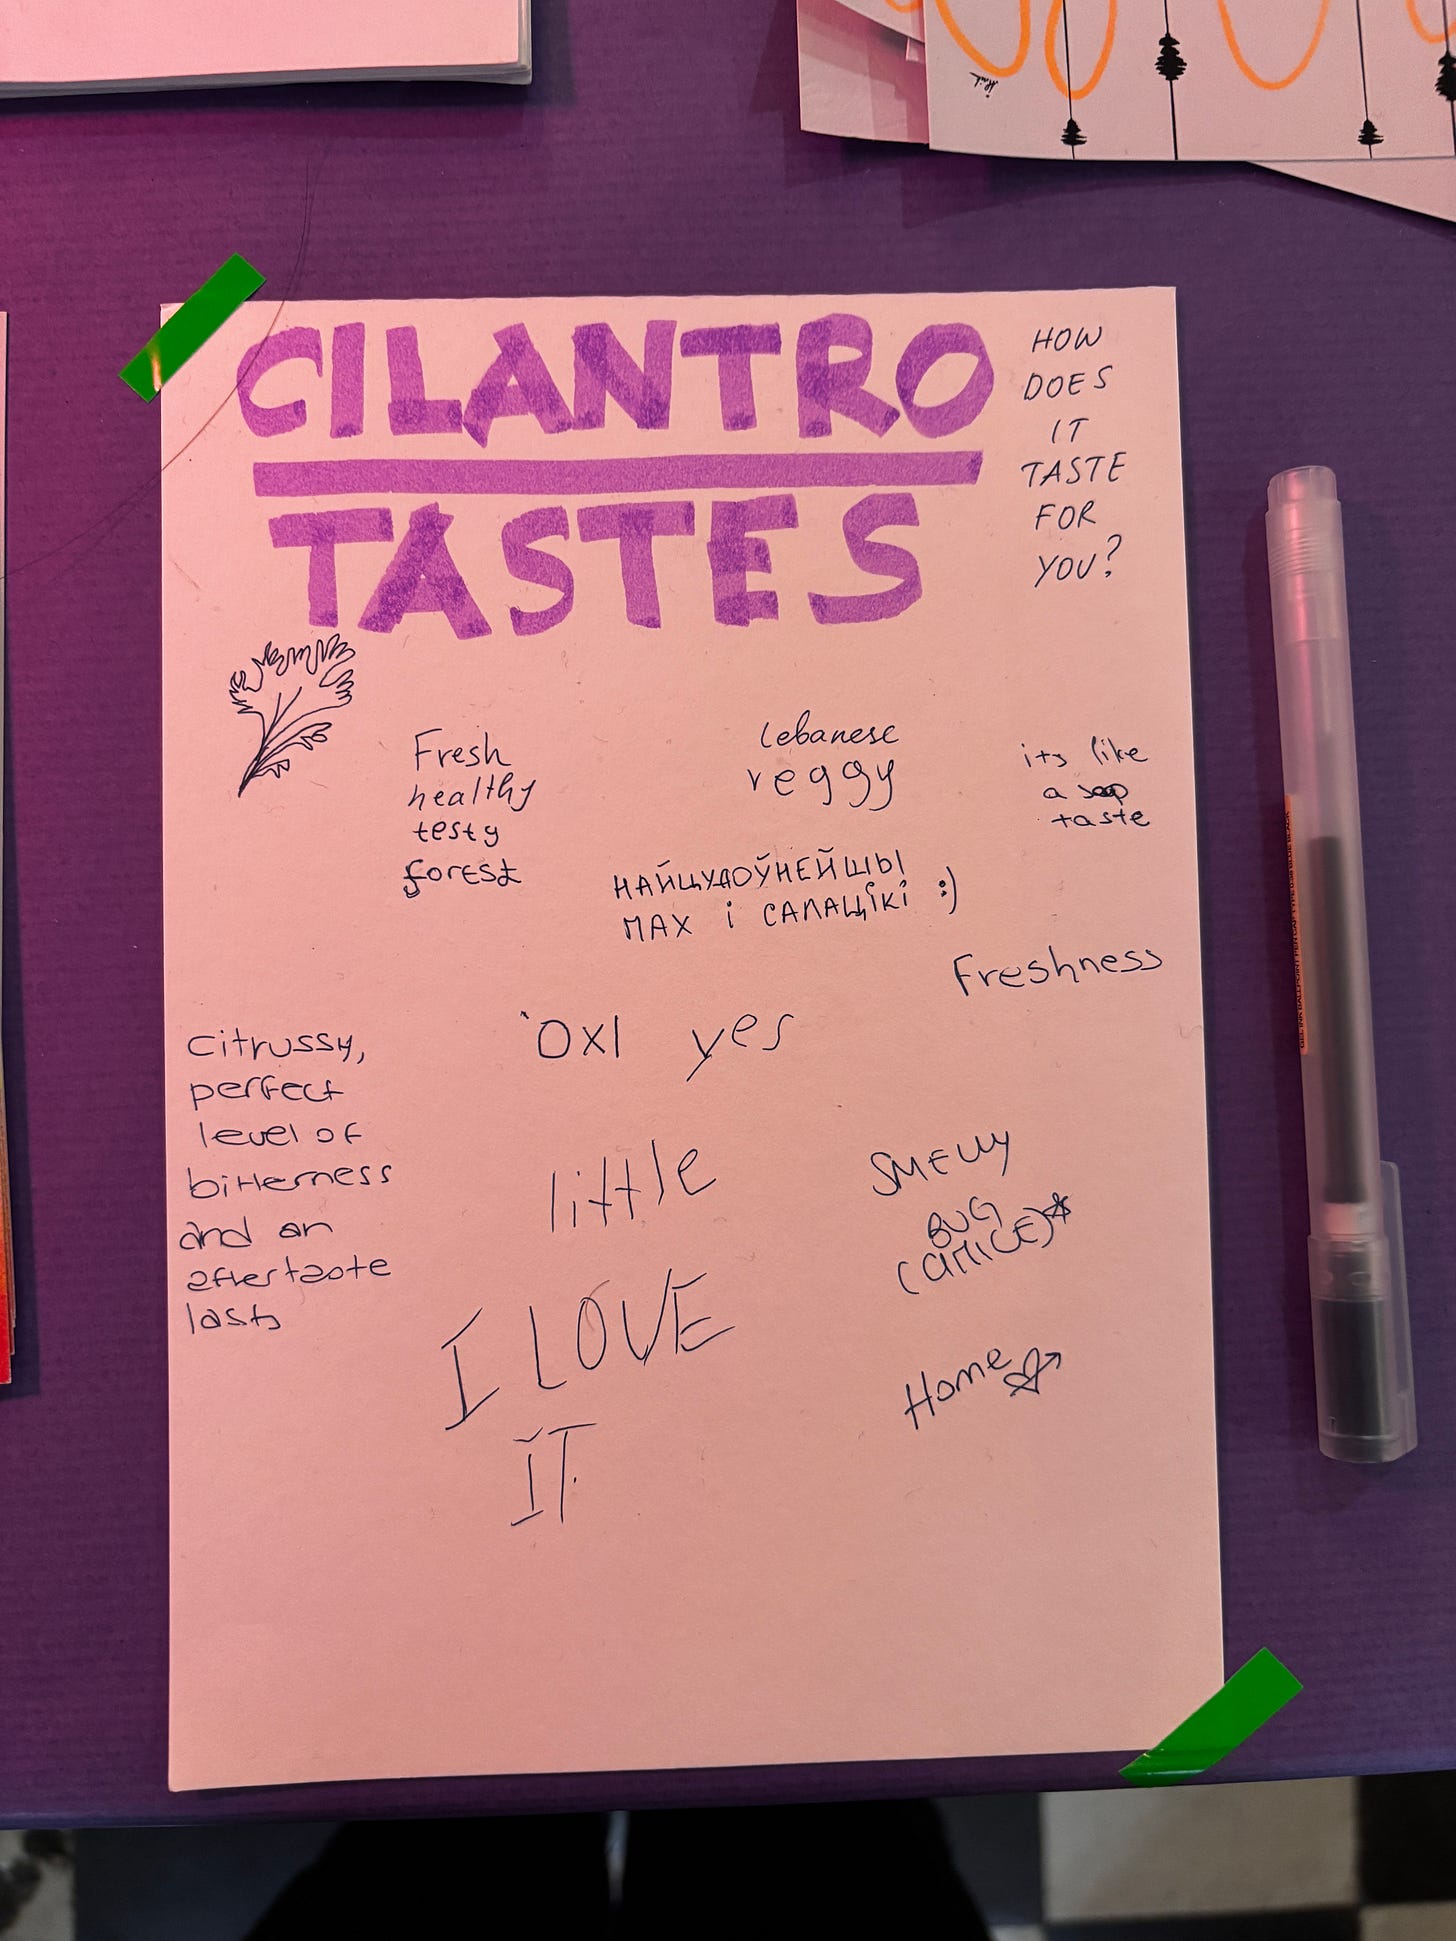 CILANTRO
TASTES
HOW
DOES
IT
TASTE
FOR
YOU?
Fresh
healthy
testy
forest
Lebanese
veggy
its like
a soap
taste
НАЙЦУДОЎНЕЙШЫ
ПАХ І САЛАЦІКІ :)
Freshness
citrussy,
perfect
level of
bitterness
and an
aftertaste
lasts
OXI yes
little
SMELLY
BUG
(CIMICE)*
I LOVE
IT
Home
GEL INK BALLPOINT PEN CAP TYPE 0.38 BLUE BLACK